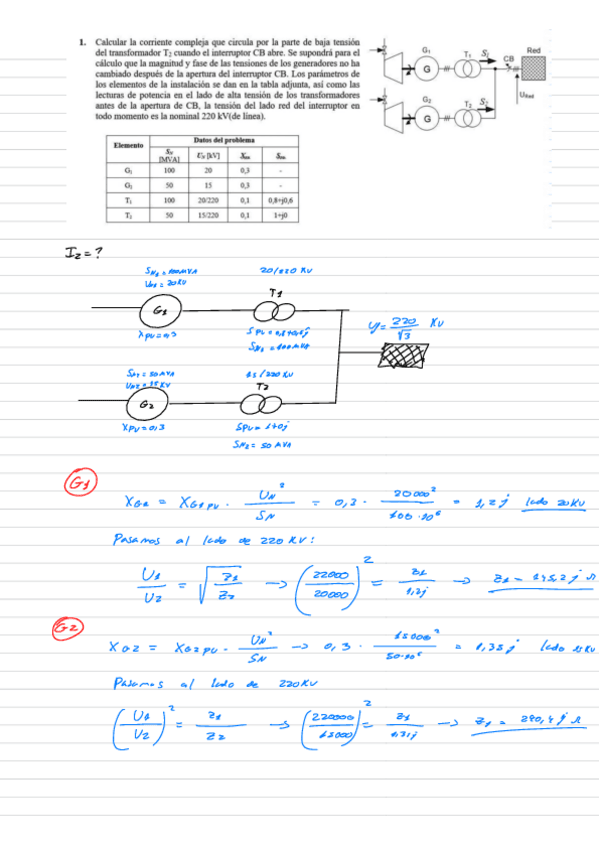 1. Calcular la corriente compleja que circula por la parte de baja tensión
del transformador T₂ cuando el interruptor CB abre. Se supondrá para el
cálculo que la magnitud y fase de las tensiones de los generadores no ha
cambiado después de la apertura del interruptor CB. Los parámetros de
los elementos de la instalación se dan en la tabla adjunta, así como las
lecturas de potencia en el lado de alta tensión de los transformadores
antes de la apertura de CB, la tensión del lado red del interruptor en
todo momento es la nominal 220 kV(de línea).
G₁ T₁ S₁ CB Red
G
U_Red
G₂ T₂ S₂
G
Elemento Datos del problema
S_N [MVA] E_N [kV]
G₁ 100 20 0,3 -
G₂ 50 15 0,3 -
T₁ 100 20/220 0,1 0,8+j0,6
T₂ 50 15/220 0,1 1+j0
I₂ = ?
S_N1 = 100 MVA 20/220 KV
U_N1 = 20KV
T1
G1
X PU = 0,3
S_N1 = 100 MVA
U = 220/√3 KV
U_N2 = 15 KV 15/220 KV
T2
G2
X PU = 0,3 S PU = 1+0j
S_N2 = 50 MVA
G1
X_G1 = X_G1 PU · U_N²/S_N = 0,3 · 20000²/100·10⁶ = 1,2 j lado 20KV
Pasamos al lado de 220 KV:
U1/U2 = √(Z1/Z2) → (22000/20000)² = Z1/1,2j → Z1 = 145,2 j Ω
G2
X_G2 = X_G2 PU · U_N²/S_N → 0,3 · 15000²/50·10⁶ = 1,35 j lado 15 KV
Pasamos al lado de 220KV
(U1/U2)² = Z1/Z2 → (220000/15000)² = Z1/1,35j → Z1 = 290,4 j Ω